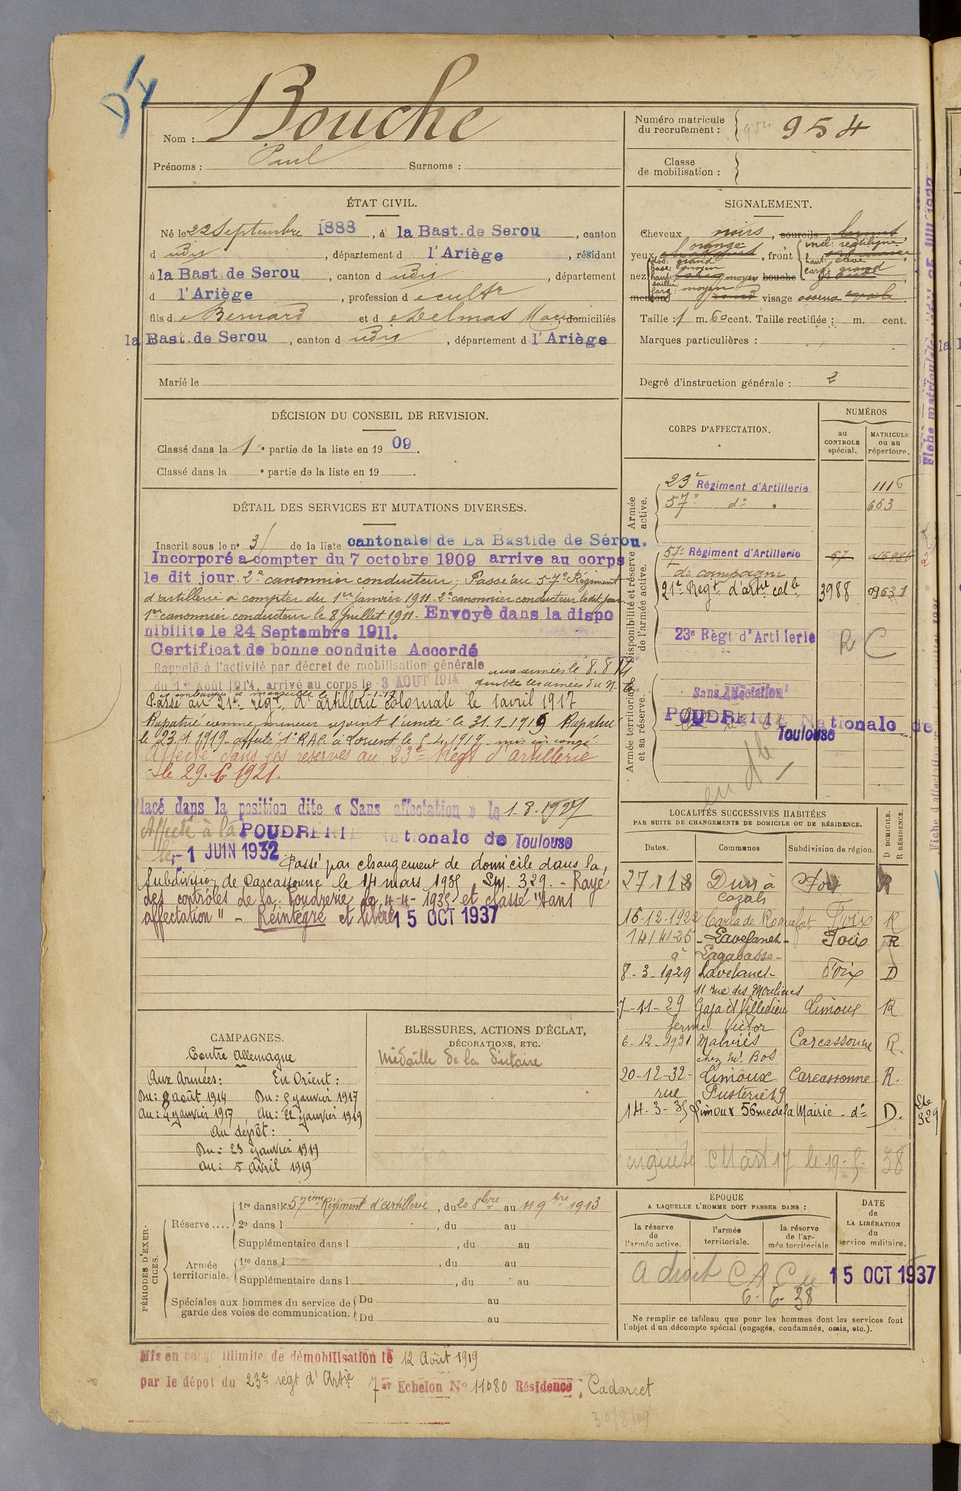 Nom : Bouche
Prénoms : Paul Surnoms :
Numéro matricule
du recrutement : 954
Classe
de mobilisation :
ÉTAT CIVIL.
Né le 22 Septembre 1888, à la Bast. de Serou, canton
d udis, département d l'Ariège, résidant
à la Bast. de Serou, canton d udis, département
d l'Ariège, profession d cultr
fils d e Bernard et d e Delmas domiciliés
la Bast. de Serou, canton d udis, département d l'Ariège
Marié le
SIGNALEMENT.
Cheveux noirs, sourcils
yeux orangé, front
nez moyen bouche
menton visage
Taille : 1 m. 60 cent. Taille rectifiée : m. cent.
Marques particulières :
Degré d'instruction générale : 2
DÉCISION DU CONSEIL DE REVISION.
Classé dans la 1e partie de la liste en 1909.
Classé dans la e partie de la liste en 19
CORPS D'AFFECTATION.
NUMÉROS
au
CONTROLE
spécial.
MATRICULE
ou au
répertoire.
Armée
active.
23e Régiment d'Artillerie 1116
57e do 663
Disponibilité et réserve
de l'armée active.
57e Régiment d'Artillerie
de campagne
21e Regt d'artie colle 3988
23e Régt d'Artillerie R C
Armée territoriale
et sa réserve.
Sans Affectation
POUDRERIE Nationale de
Toulouse
DÉTAIL DES SERVICES ET MUTATIONS DIVERSES.
Inscrit sous le n° 31 de la liste cantonale de La Bastide de Sérou.
Incorporé à compter du 7 octobre 1909 arrive au corps
le dit jour. 2e canonnier conducteur; Passé au 57e Régiment
d'artillerie à compter du 1er Janvier 1911. 2e canonnier conducteur le dit jour
1er canonnier conducteur le 8 Juillet 1911. Envoyé dans la dispo
nibilité le 24 Septembre 1911.
Certificat de bonne conduite Accordé
Rappelé à l'activité par décret de mobilisation générale aux armées le 8.8.14
du 1er Août 1914, arrivé au corps le 3 AOUT 1914
Passé au 21e regt d'artillerie coloniale le 1 avril 1917
Rapatrié comme mineur rejoint l'unité le 31.1.1919 Rapatrié
le 23.1.1919 affecté 1er RAC à Lorient le 5.4.1919 mis en congé
Affecté dans les réserves au 23e Regt d'artillerie
le 29.6.1921.
lacé dans la position dite « Sans affectation » le 1.8.1927
Affecté à la POUDRERIE Nationale de Toulouse
le 1 JUIN 1932 Passé par changement de domicile dans la
Subdivision de Carcassonne le 14 mars 1935 329. - Rayé
des contrôles de la Poudrerie le 4-4-1935 et classé "sans
affectation" - Réintégré et libéré 15 OCT 1937
LOCALITÉS SUCCESSIVES HABITÉES
PAR SUITE DE CHANGEMENTS DE DOMICILE OU DE RÉSIDENCE.
Dates. Communes Subdivision de région. D DOMICILE. R RÉSIDENCE.
Foix R
16-12-1922 Carla de Roquefort Foix R
14/4/25 Lavelanet Foix R
8-3-1929 Lavelanet Foix D
11 rue des Moulines
7-11-29 Gaja et Villedieu Limoux R
ferme Victor
6-12-1931 Malviès Carcassonne R.
chez Mr Bos
20-12-32 Limoux Carcassonne R.
rue Fusterie 19
14-3-35 Limoux 56 rue de la Mairie do D. 329
CAMPAGNES.
Contre Allemagne
Aux Armées : En Orient :
Du : 8 août 1914 Du : 5 janvier 1917
Au : 4 janvier 1917 Au : 22 janvier 1919
Au dépôt :
Du : 23 janvier 1919
Au : 5 avril 1919
BLESSURES, ACTIONS D'ÉCLAT,
DÉCORATIONS, ETC.
Médaille de la Victoire
PÉRIODES D'EXERCICES.
Réserve .... 1re dans le 57ème Régiment d'artillerie, du 20 8bre au 11 9bre 1913
2e dans l , du au
Supplémentaire dans l , du au
Armée
territoriale. 1re dans l , du au
Supplémentaire dans l , du au
Spéciales aux hommes du service de
garde des voies de communication. Du au
Du au
ÉPOQUE
A LAQUELLE L'HOMME DOIT PASSER DANS :
la réserve
de l'armée active.
l'armée
territoriale.
la réserve
de l'ar-
mée territoriale
DATE
de
LA LIBÉRATION
du
service militaire.
A droit C A C le
6-5-38
15 OCT 1937
Ne remplir ce tableau que pour les hommes dont les services font
l'objet d'un décompte spécial (engagés, condamnés, omis, etc.).
Mis en congé illimité de démobilisation le 12 Août 1919
par le dépôt du 23e regt d'Artie 7e Echelon No 11080 Résidence : Cadarcet